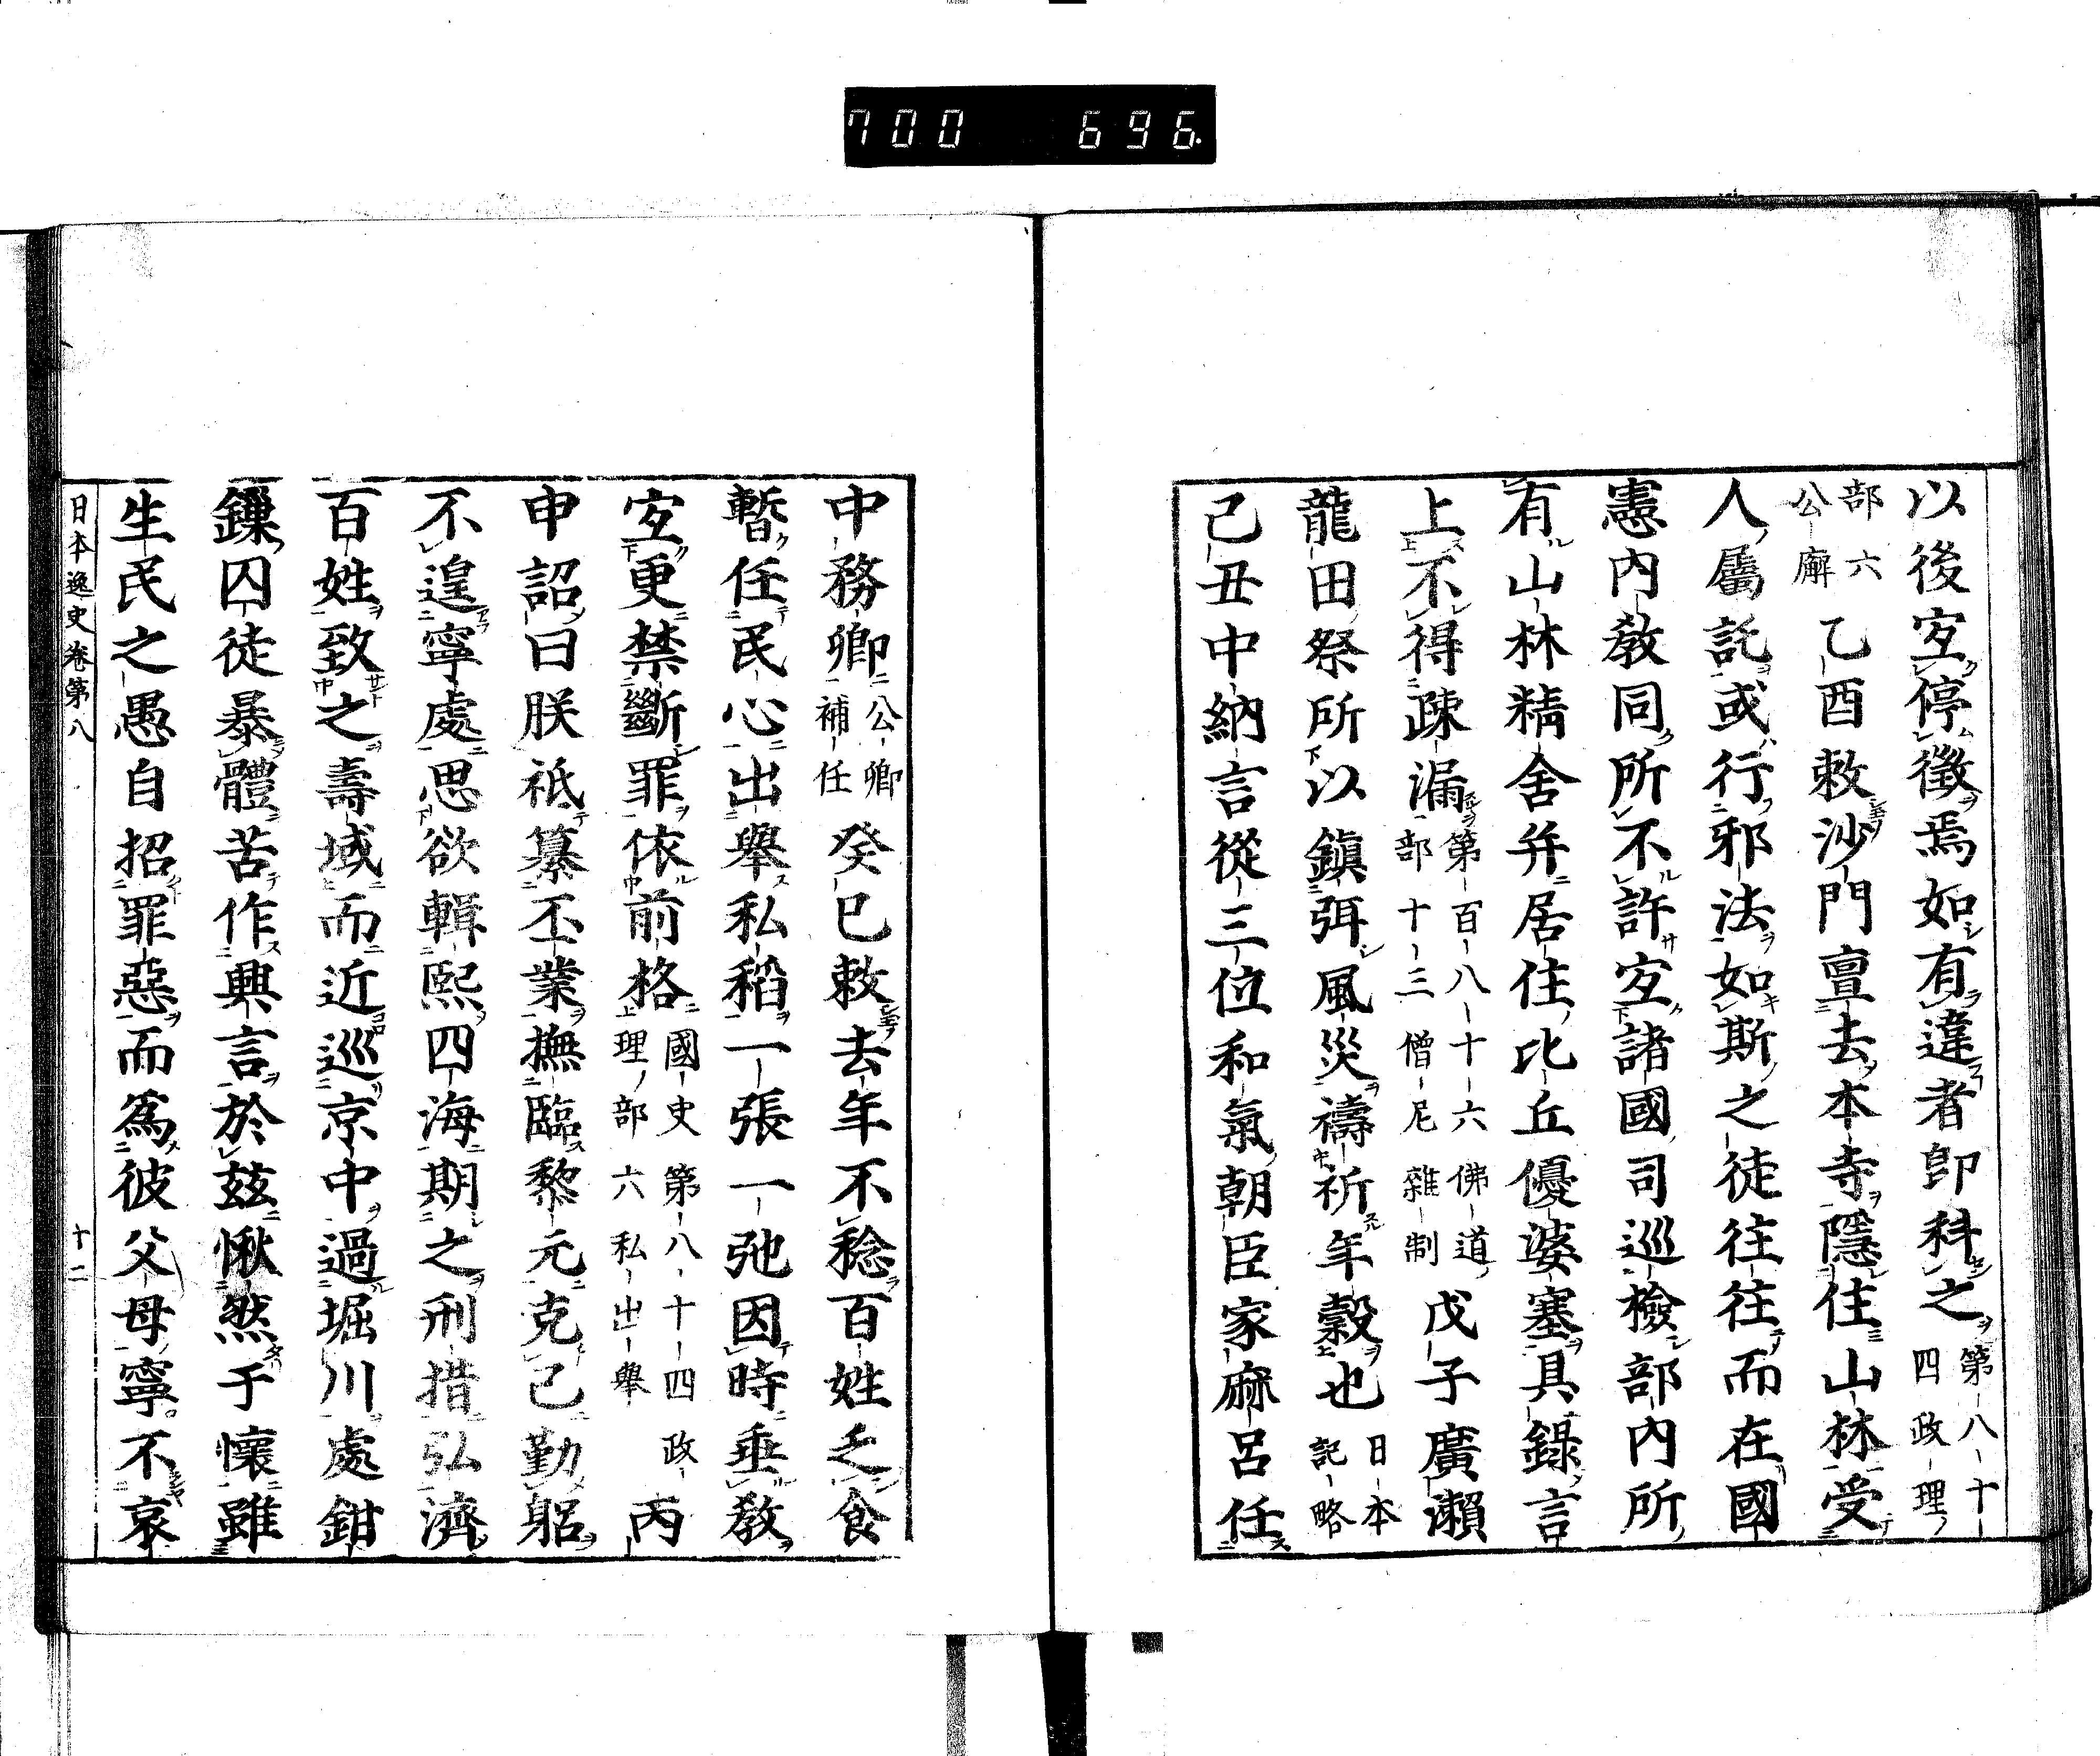 700 696.
以後宐停徵焉如有違者卽科之第八十四政理
部六公廨乙酉敕沙門亶去本寺隱住山林受
人屬託或行邪法如斯之徒往往而在國
憲內敎同所不許宐諸國司巡檢部內所
有山林精舍幷居住比丘優婆塞具錄言
上不得疎漏第百八十六佛道部十三僧尼雜制戊子廣瀨
龍田祭所以鎭弭風災禱祈年穀也日本記略
己丑中納言從三位和氣朝臣家麻呂任
中務卿公卿補任癸巳敕去年不稔百姓乏食
暫任民心出擧私稻一張一弛因時垂敎
宐更禁斷罪依前格國史第八十四政理部六私出擧丙
申詔曰朕祇纂丕業撫臨黎元克己勤躬
不遑寧處思欲輯熙四海期之刑措弘濟
百姓致之壽域而近巡京中過堀川處鉗
鏁囚徒暴體苦作興言於茲愀然于懷雖
生民之愚自招罪惡而爲彼父母寧不哀
日本逸史卷第八 十二